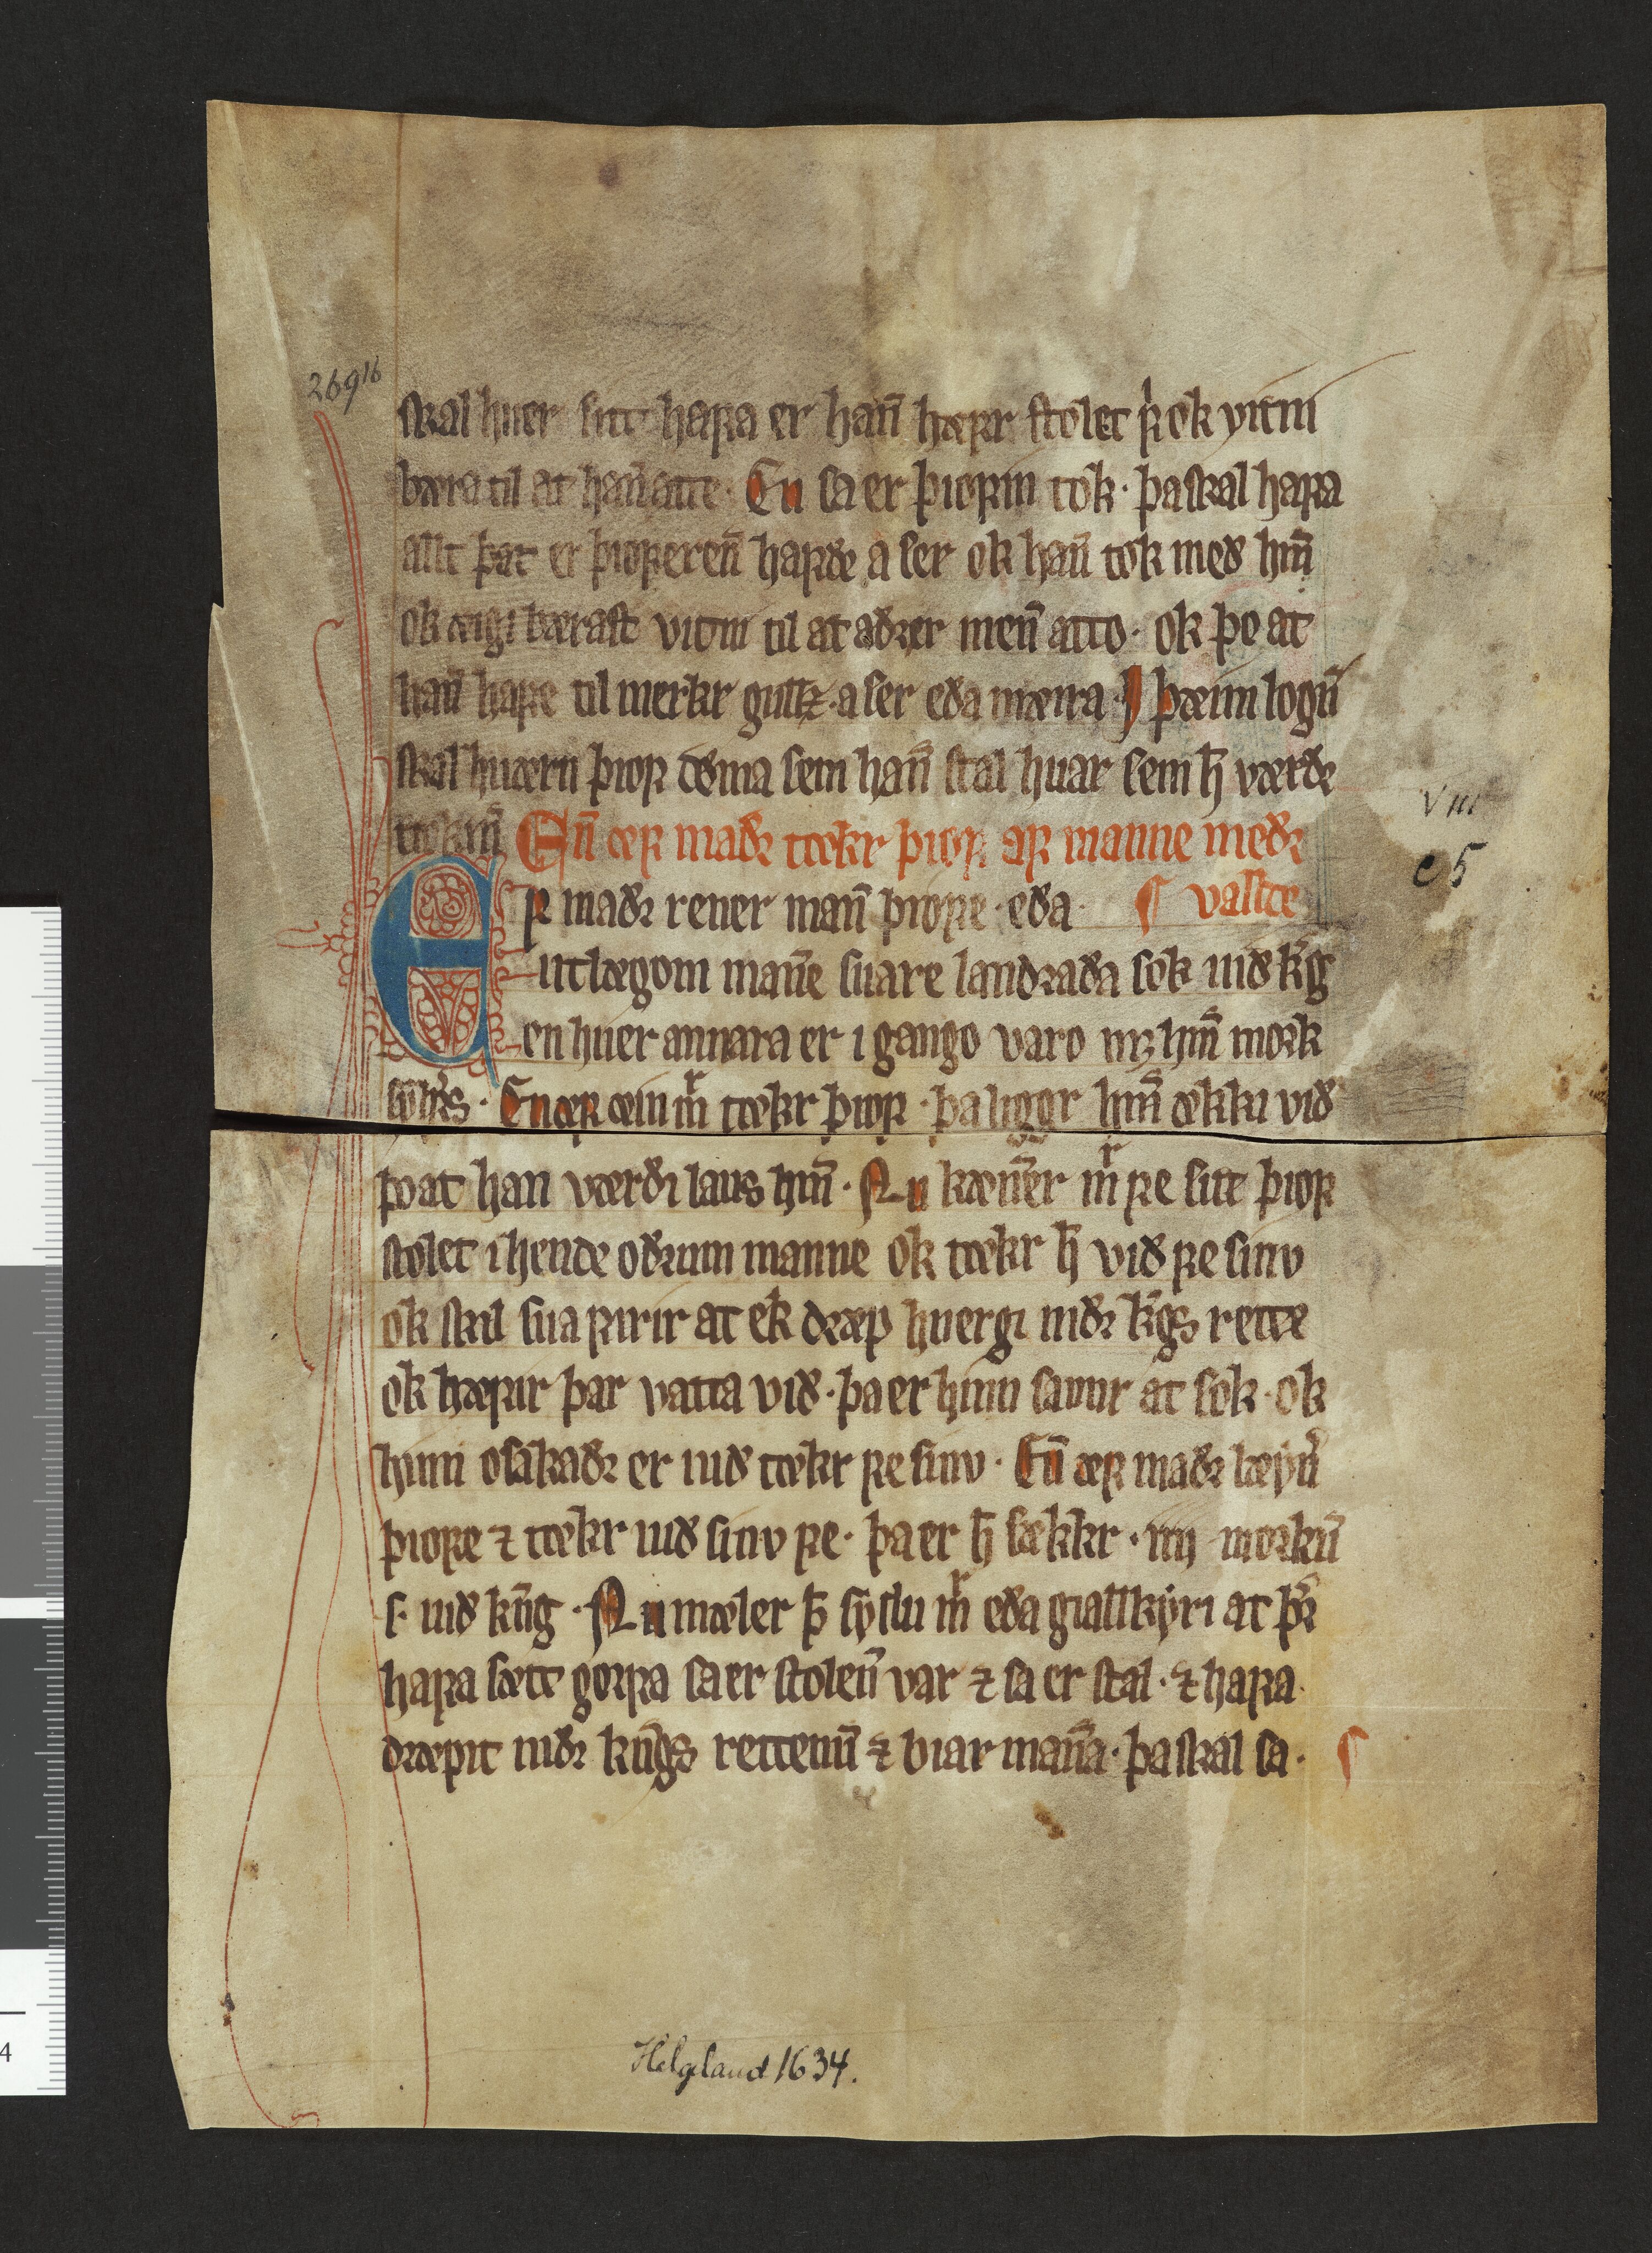 269¹⁶
skal huer sitt hafa er hań hæfir stolet f͛ ok vitni
bæra til at hań atte · En sa er þiofin tok · þa skal hafa
allt þat er þioferen̄ hafde a ser ok han̄ tok með hm̄
ok æigi bærast vitni til at aðrer men̄ atto · ok þo at
han̄ hafe til merkr gullz · a ser eða mæira · J þæim logū
skal huærn þiof dœma sem han̄ stal huar sem h̄ værðr
tækiń En̄ æf maðr tækr þiof af manne meðr
¶ vallde
Ef maðr rener man̄ þiofe · eða
utlægom man̄e suare landraða sok uið kḡ
en huer annara er i gango varo mꝫ hm̄ mork
sylfrs · En æf æin mͬ tækr þiof · þa liggr hm̄ ækki við
þoat han værði laus hm̄ · Nu kæn̄er mͬ fe sitt þiof
stolet i hende oðrum manne ok tækr h̄ við fe sinv
ok skil sua firir at ek dræp huergi niðr kḡs rette
ok hæfir þar vatta við · þa er hinn sannr at sok · ok
hinn osakaðr er uið tækr fe sinv · En̄ æf maðr læyń
þiofe ⁊ tækr uið sinv fe · þa er h̄ sækkr · iiij · morkū
s · uið kn̄g · Nu mæler þ̄ syslu mͬ eða giallkyri at þr̄
hafa sætt gorfa sa er stolen̄ var ⁊ sa er stal · ⁊ hafa
dræpit niðr kn̄gs rettenū ⁊ biar man̄a · þa skal sa · ¶
VIII
c 5
Helgeland 1634.